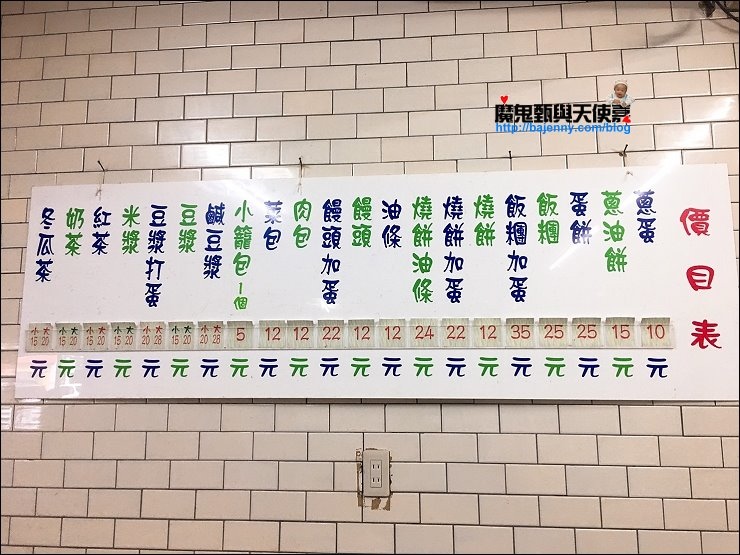 魔鬼甄與天使嘉
http://bajenny.com/blog
價目表
蔥蛋 10 元
蔥油餅 15 元
蛋餅 25 元
飯糰 25 元
飯糰加蛋 35 元
燒餅 12 元
燒餅加蛋 22 元
燒餅油條 24 元
油條 12 元
饅頭 12 元
饅頭加蛋 22 元
肉包 12 元
菜包 12 元
小籠包1個 5 元
鹹豆漿 小20 大28 元
豆漿 小15 大20 元
豆漿打蛋 小20 大28 元
米漿 小15 大20 元
紅茶 小15 大20 元
奶茶 小15 大20 元
冬瓜茶 小15 大20 元